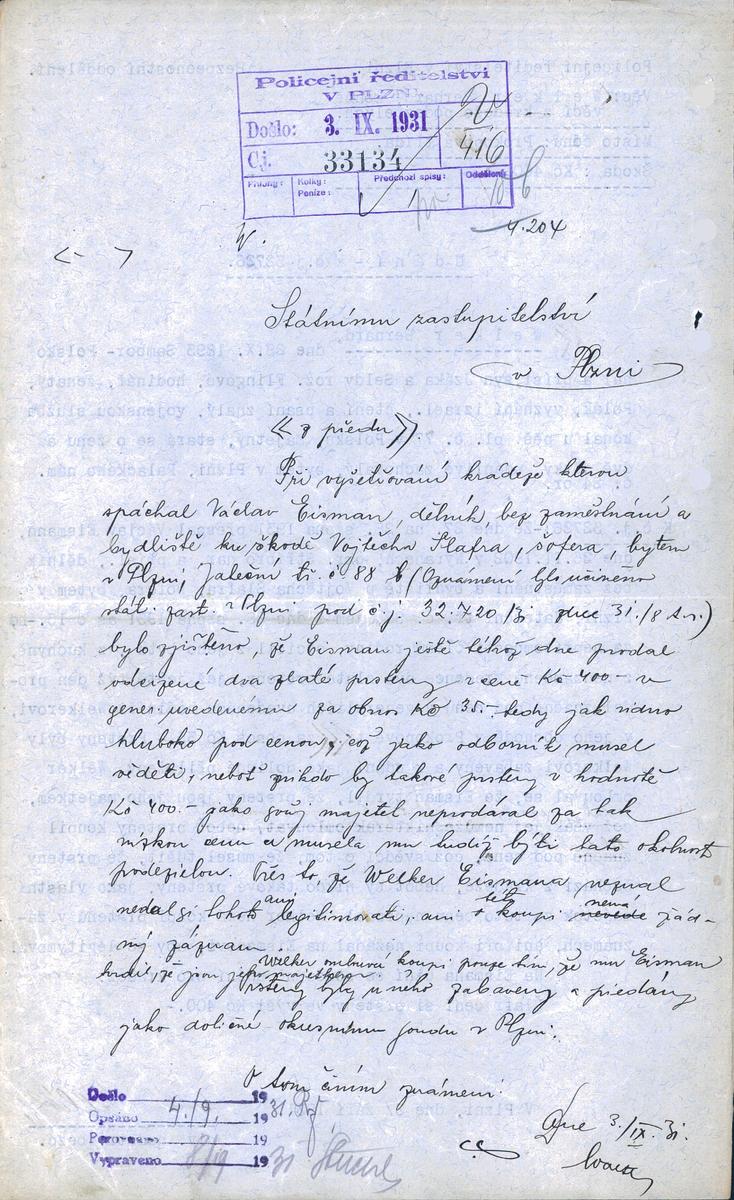 Policejní ředitelství
V PLZNI
Došlo: 3. IX. 1931
Čj. 33134
416
Přílohy: Kolky: Peníze: Předchozí spisy: Oddělení:
4.204
Státnímu zastupitelství
v Plzni
« z předu ».
Při vyšetřování krádeže kterou
spáchal Václav Eisman, dělník bez zaměstnání a
bydliště ku škodě Vojtěcha Hafra, šofera, bytem
v Plzni, tř. č. 88 (Oznámení bylo učiněno
stát. zast. v Plzni pod č.j. 32.720/31 dne 31./8 t.r.)
bylo zjištěno, že Eisman ještě téhož dne prodal
odcizené dva zlaté prsteny v ceně Kč 400.- v
gener. uvedenému za obnos Kč 35.- tedy jak vidno
hluboko pod cenou, což jako odborník musel
věděti, neboť nikdo by takové prsteny v hodnotě
Kč 400.- jako svůj majetek neprodával za tak
nízkou cenu a musela mu tudíž býti tato okolnost
podezřelou. Přes to že Welker Eismana neznal
nedal si tohoto ani legitimovati, ani o koupi této nemá nevede žád-
ný záznam.
Welker omlouvá koupi pouze tím, že mu Eisman
tvrdil, že jsou jeho majetkem.
Prsteny byly u něho zabaveny a předány
jako doličné okresnímu soudu v Plzni.
O tom činím oznámení.
Dne 3./IX. 31.
Došlo 19
Opsáno 4./9. 1931
Porovnáno 19
Vypraveno 8/9 1931